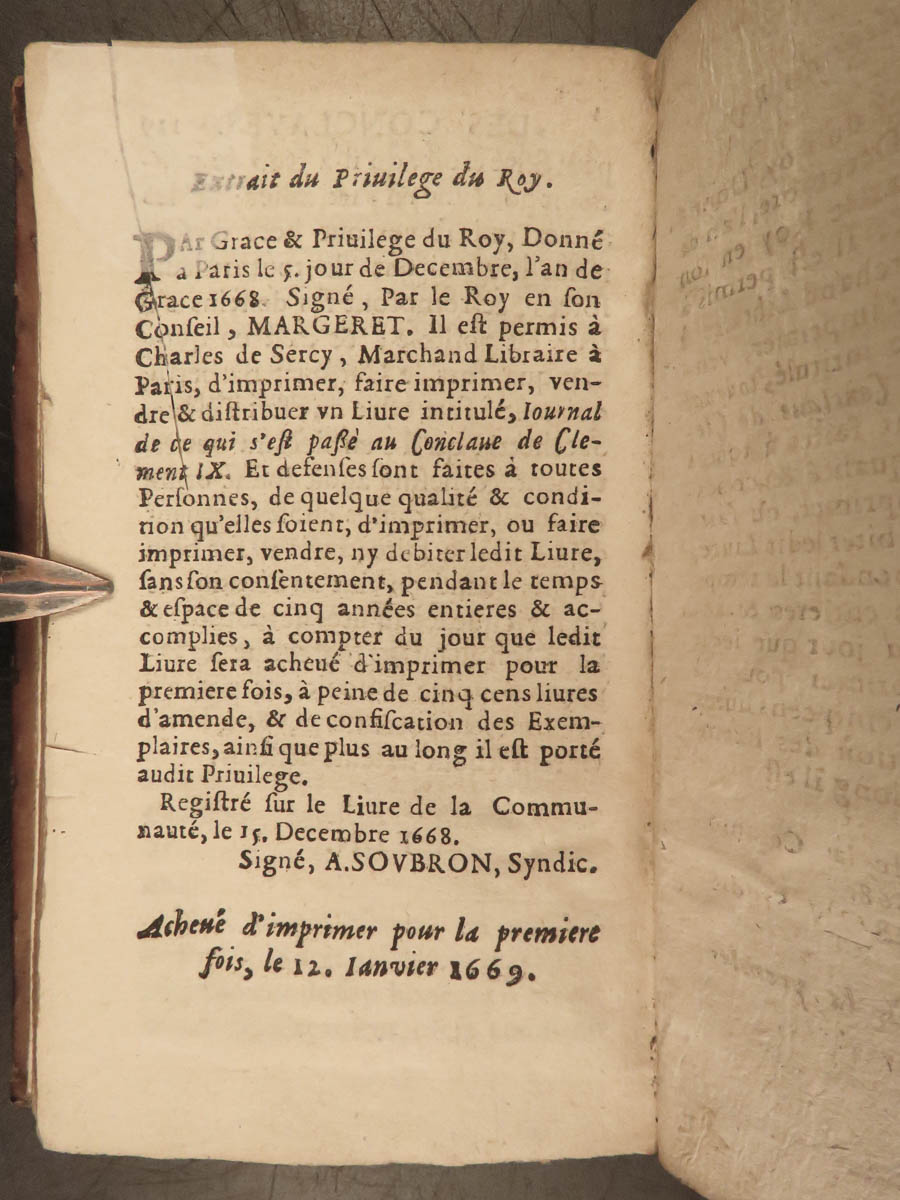 Extrait du Priuilege du Roy.
PAr Grace & Priuilege du Roy, Donné
a Paris le 5. jour de Decembre, l'an de
Grace 1668. Signé, Par le Roy en ſon
Conſeil, MARGERET. Il eſt permis à
Charles de Sercy, Marchand Libraire à
Paris, d'imprimer, faire imprimer, ven-
dre & diſtribuer vn Liure intitulé, Iournal
de ce qui s'eſt paßé au Conclaue de Cle-
ment IX. Et defenſes ſont faites à toutes
Perſonnes, de quelque qualité & condi-
tion qu'elles ſoient, d'imprimer, ou faire
imprimer, vendre, ny debiter ledit Liure,
ſans ſon conſentement, pendant le temps
& eſpace de cinq années entieres & ac-
complies, à compter du jour que ledit
Liure ſera acheué d'imprimer pour la
premiere fois, à peine de cinq cens liures
d'amende, & de confiſcation des Exem-
plaires, ainſi que plus au long il eſt porté
audit Priuilege.
Regiſtré ſur le Liure de la Commu-
nauté, le 15. Decembre 1668.
Signé, A. SOVBRON, Syndic.
Acheué d'imprimer pour la premiere
fois, le 12. Ianvier 1669.